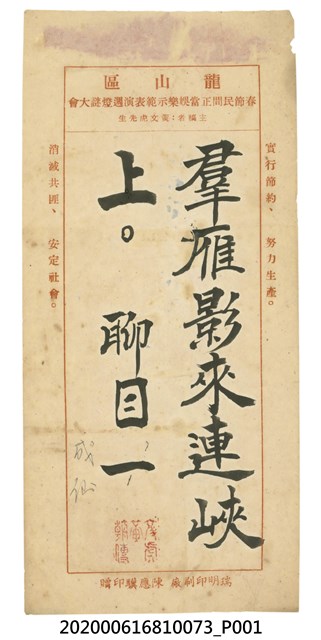 龍山區
春節民間正當娛樂示範表演週燈謎大會
主編者：黃文虎先生
實行節約、 努力生產。
羣雁影來連峽
上。 聊目一
消滅共匪、 安定社會。
成仙
瑞明印刷廠 陳應聯印贈
202000616810073_P001